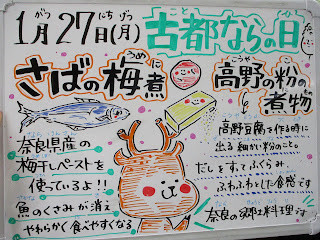 1月27日(月) 古都ならの日
がつ にち げつ こと ひ
さばの梅煮
うめ に
高野の粉の煮物
こうや こ にもの
奈良県産の
梅干しペーストを
使っているよ!!
魚のくさみが消え
やわらかく食べやすくなる
高野豆腐を作る時に
出る細かい粉のこと。
だしをすってふくらみ、
ふわふわとした食感です
奈良の郷土料理です